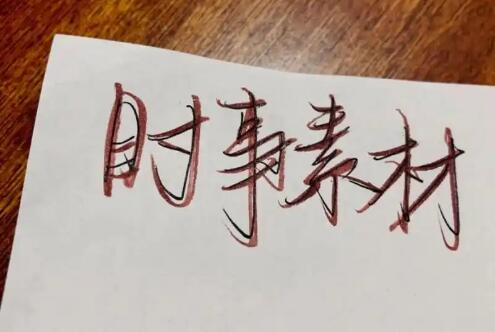 时事素材